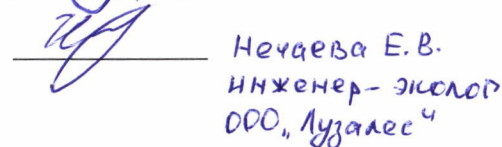 Нечаева Е.В.
инженер-эколог
ООО „Лузалес"